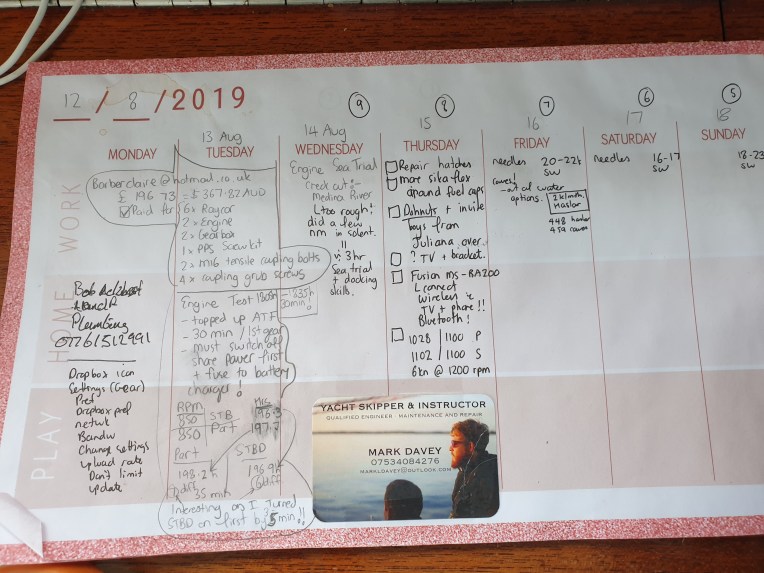 12 / 8 / 2019
13 Aug
14 Aug
15
16
17
18
9
8
7
6
5
MONDAY
TUESDAY
WEDNESDAY
THURSDAY
FRIDAY
SATURDAY
SUNDAY
WORK
HOME
PLAY
Barberclaire@hotmail.co.uk
£ 196.73 = $367.82 AUD
Paid for
6 x Raycor
2 x Engine
2 x Gearbox
1 x PPS Saew kit
2 x M16 tensile coupling bolts
4 x coupling grub screws
Bob
Plumbing
07761512991
Dropbox icon
Settings (Gear)
Pref
Dropbox pref
netwk
Bandw
Change settings
upload rate
Don't limit
update
Engine Test 1805h
- 1835h
30min!
- topped up ATF
- 30 min / 1st gear
- must switch off
shore power first
+ fuse to battery
charger!
RPM
Hrs
850 STB 196.3
850 Port 197.7
Port
STBD
198.2h
196.9h
35 min
Interesting on I turned
STBD on first by 5 min!!
Engine Sea Trial
Check out:-
Medina River
too rough!
did a few
nm in solent.
11
3hr
Sea trial
+ docking
skills.
Repair hatches
more sika flex
around fuel caps
Dohnuts + invite
boys from
Juliana over.
? TV + bracket.
Fusion ms-RA200
connect
wireless
TV + phone!!
Bluetooth!
1028 / 1100 P
1102 / 1100 S
6kn @ 1200 rpm
needles 20-22k
SW
- out of water
options.
Haslar
448 haslar
needles 16-17
SW
18-23
SW
YACHT SKIPPER & INSTRUCTOR
QUALIFIED ENGINEER - MAINTENANCE AND REPAIR
MARK DAVEY
07534084276
MARKLDAVEY@OUTLOOK.COM